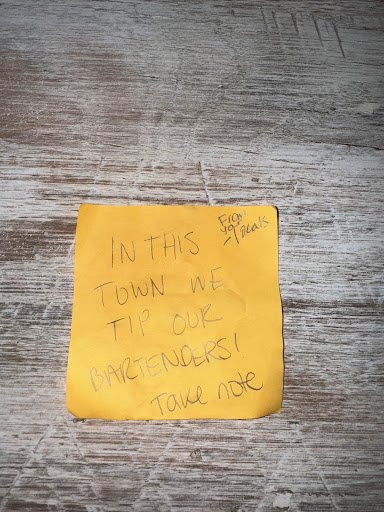 IN THIS
TOWN WE
TIP OUR
BARTENDERS!
Take note
From
Locals